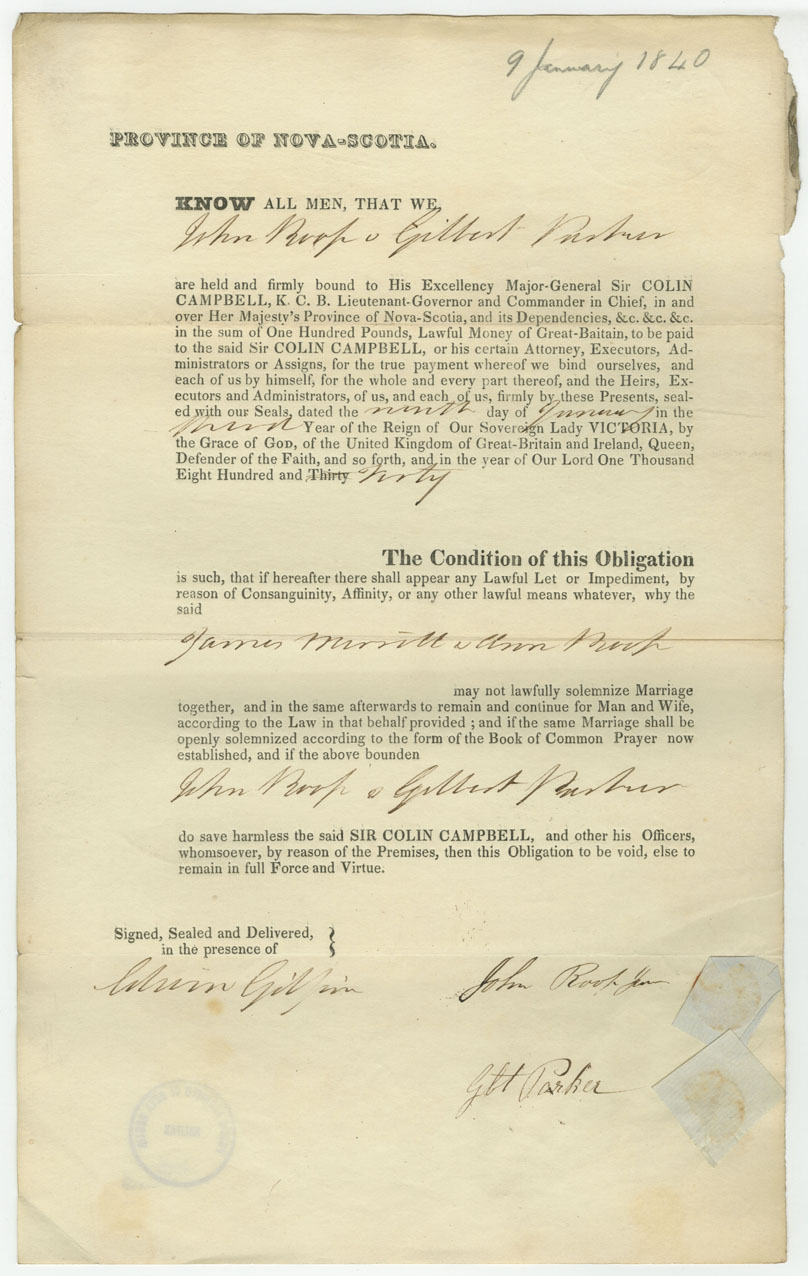 9 January 1840
PROVINCE OF NOVA-SCOTIA.
KNOW ALL MEN, THAT WE,
John Roop & Gilbert Parker
are held and firmly bound to His Excellency Major-General Sir COLIN
CAMPBELL, K. C. B. Lieutenant-Governor and Commander in Chief, in and
over Her Majesty's Province of Nova-Scotia, and its Dependencies, &c. &c. &c.
in the sum of One Hundred Pounds, Lawful Money of Great-Baitain, to be paid
to the said Sir COLIN CAMPBELL, or his certain Attorney, Executors, Ad-
ministrators or Assigns, for the true payment whereof we bind ourselves, and
each of us by himself, for the whole and every part thereof, and the Heirs, Ex-
ecutors and Administrators, of us, and each of us, firmly by these Presents, seal-
ed with our Seals, dated the ninth day of January in the
third Year of the Reign of Our Sovereign Lady VICTORIA, by
the Grace of GOD, of the United Kingdom of Great-Britain and Ireland, Queen,
Defender of the Faith, and so forth, and in the year of Our Lord One Thousand
Eight Hundred and Thirty forty
The Condition of this Obligation
is such, that if hereafter there shall appear any Lawful Let or Impediment, by
reason of Consanguinity, Affinity, or any other lawful means whatever, why the
said
James Merritt & Ann Roop
may not lawfully solemnize Marriage
together, and in the same afterwards to remain and continue for Man and Wife,
according to the Law in that behalf provided ; and if the same Marriage shall be
openly solemnized according to the form of the Book of Common Prayer now
established, and if the above bounden
John Roop & Gilbert Parker
do save harmless the said SIR COLIN CAMPBELL, and other his Officers,
whomsoever, by reason of the Premises, then this Obligation to be void, else to
remain in full Force and Virtue.
Signed, Sealed and Delivered,
in the presence of
Edwin Gilpin
John Roop Jun
Gbt Parker